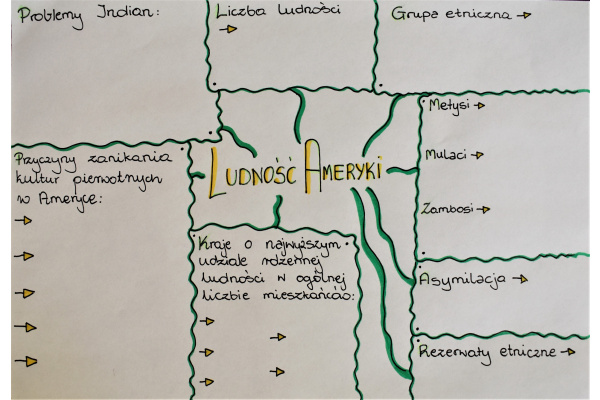 Problemy Indian:
Liczba ludności
Grupa etniczna
Metysi
Mulaci
Zambosi
Asymilacja
Rezerwaty etniczne
LUDNOŚĆ AMERYKI
Przyczyny zanikania
kultur pierwotnych
w Ameryce:
Kraje o najwyższym
udziale rdzennej
ludności w ogólnej
liczbie mieszkańców: